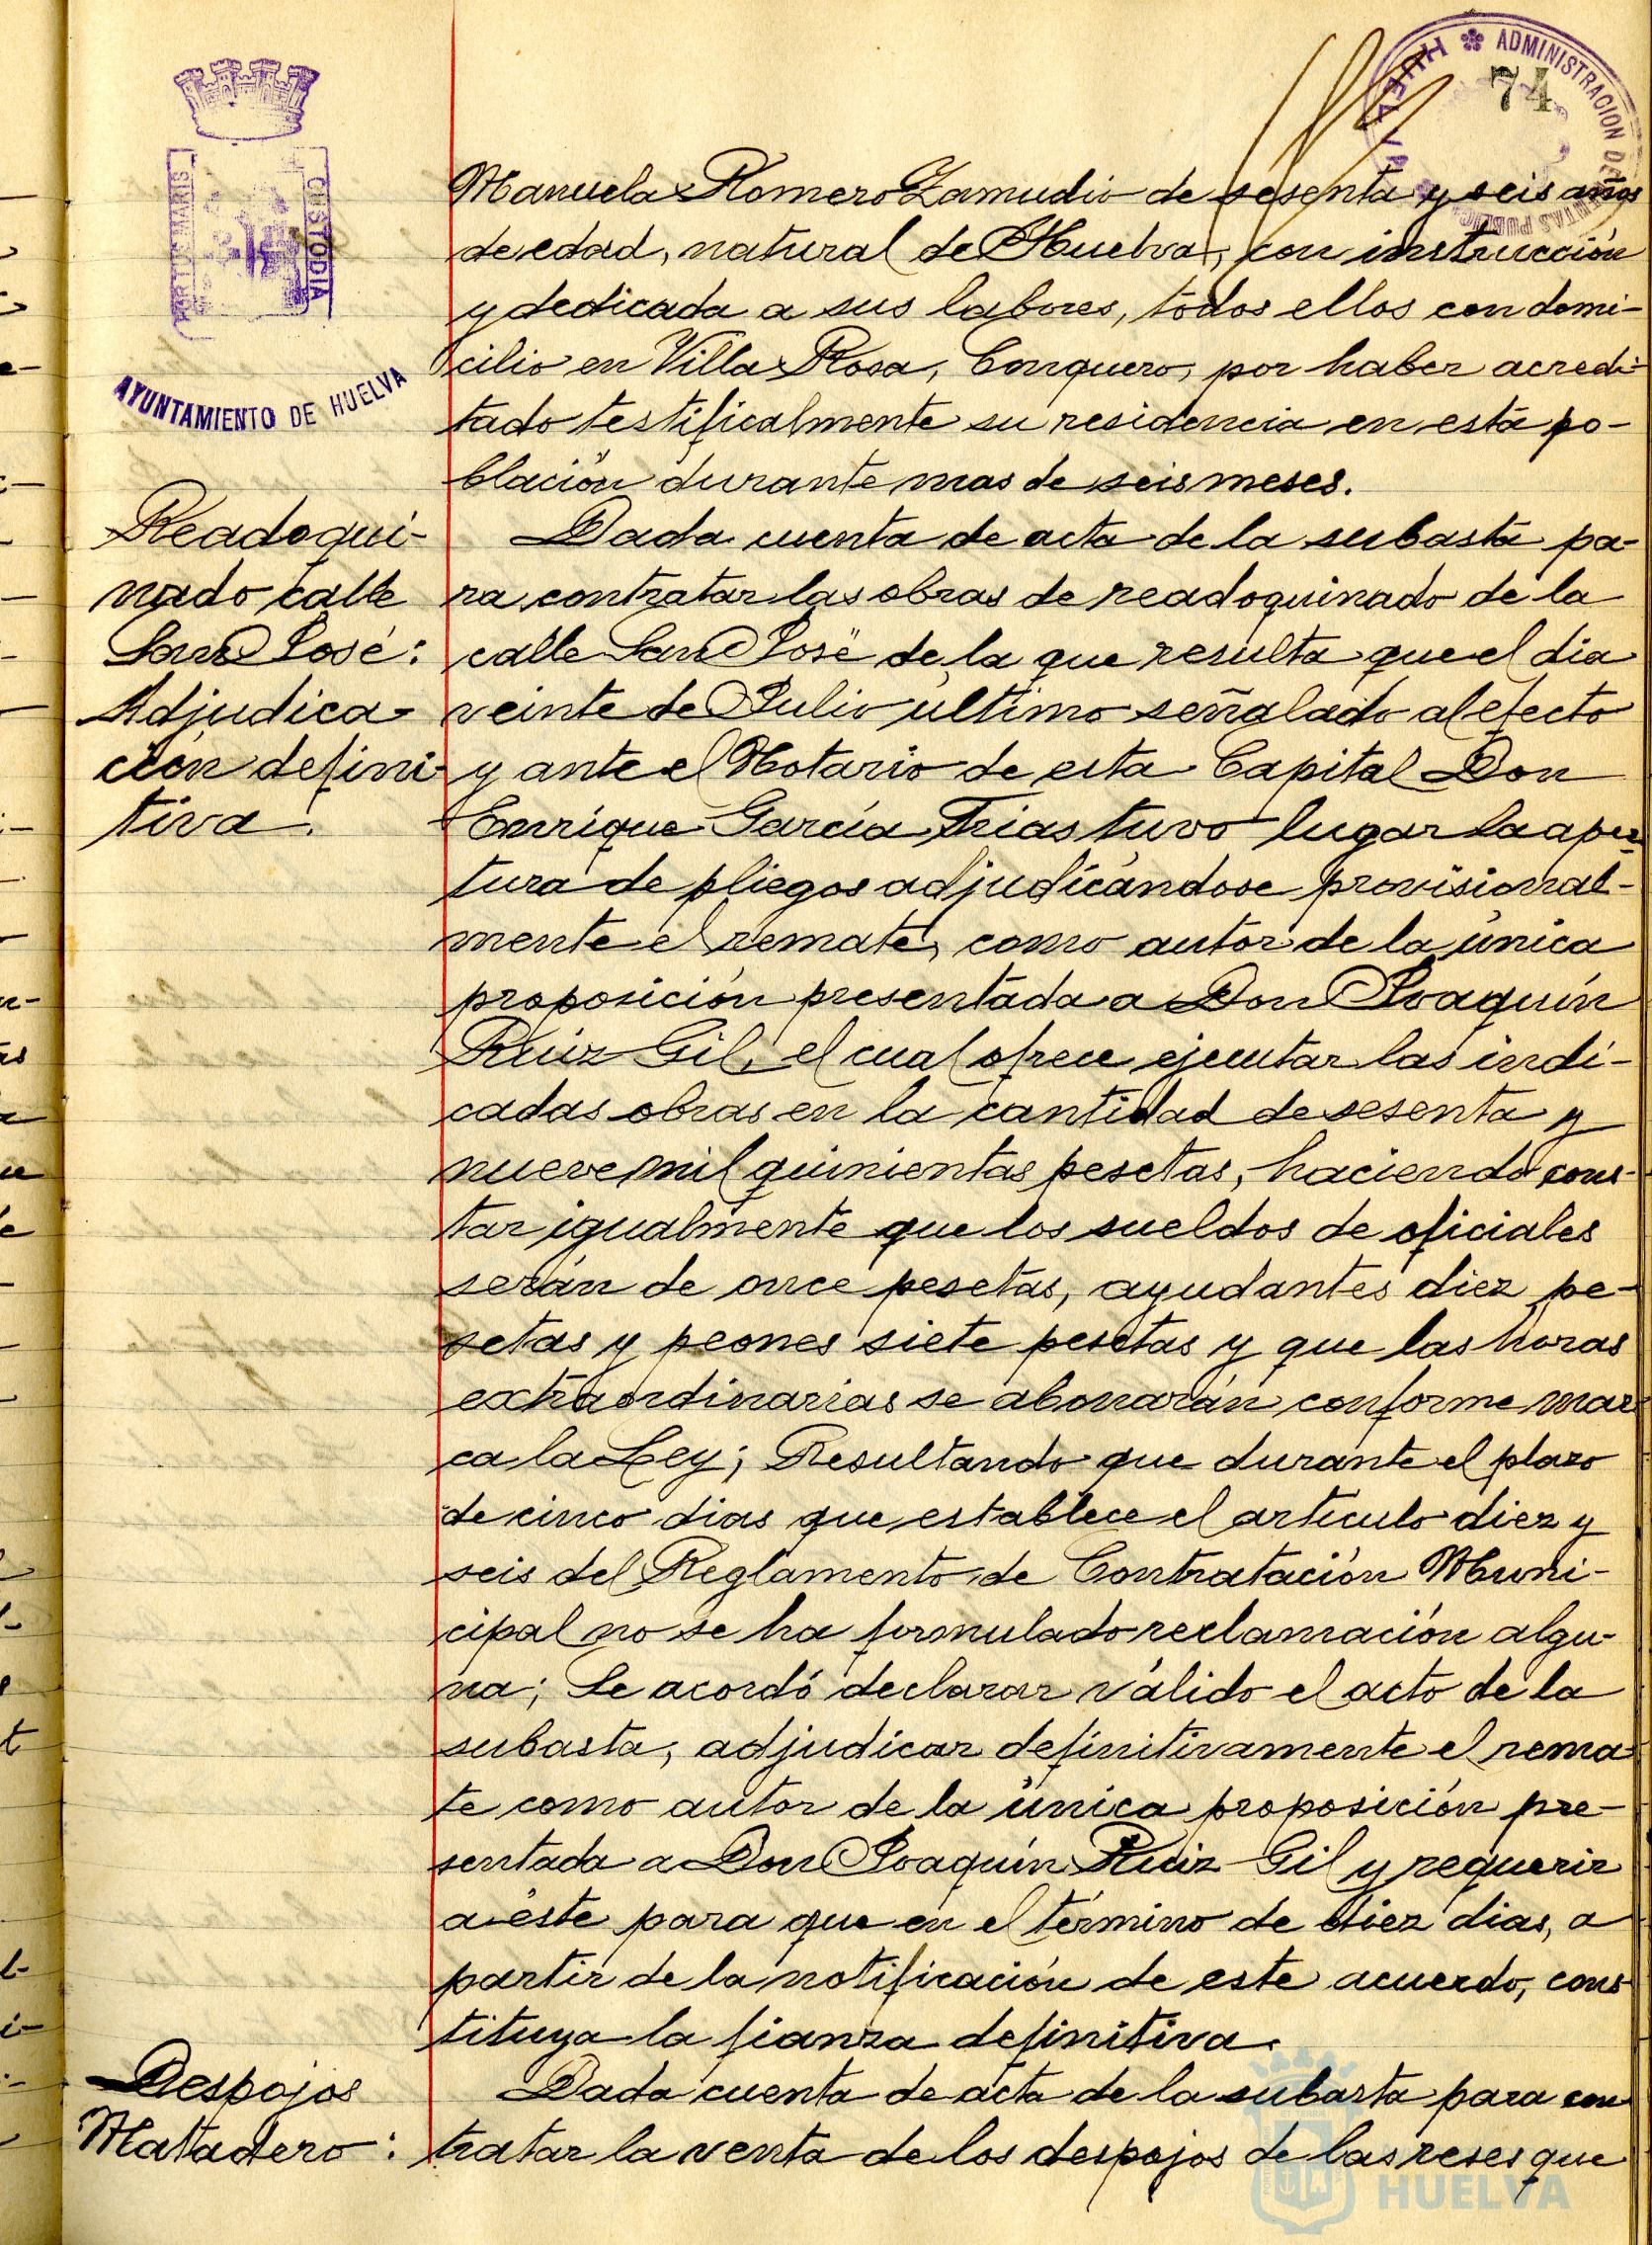 74
ADMINISTRACION DE
HUELVA
PORTUS MARIS
CUSTODIA
AYUNTAMIENTO DE HUELVA
Manuela Romero Zamudio de sesenta y seis años
de edad, natural de Huelva, con instrucción
y dedicada a sus labores, todos ellos con domi-
cilio en Villa Rosa, Conquero, por haber acredi-
tado testificalmente su residencia en esta po-
blación durante mas de seis meses.
Readoqui-
nado calle
San José:
Adjudica-
ción defini-
tiva.
Dada cuenta de acta de la subasta pa-
ra contratar las obras de readoquinado de la
calle San José de la que resulta que el dia
veinte de Julio último señalado al efecto
y ante el Notario de esta Capital Don
Enrique García Frias tuvo lugar la aper-
tura de pliegos adjudicándose provisional-
mente el remate, como autor de la única
proposición presentada a Don Joaquín
Ruiz Gil, el cual ofrece ejecutar las indi-
cadas obras en la cantidad de sesenta y
nueve mil quinientas pesetas, haciendo cons-
tar igualmente que los sueldos de oficiales
serán de once pesetas, ayudantes diez pe-
setas y peones siete pesetas y que las horas
extraordinarias se abonarán conforme mar-
ca la Ley; Resultando que durante el plazo
de cinco dias que establece el artículo diez y
seis del Reglamento de Contratación Muni-
cipal no se ha formulado reclamación algu-
na; Se acordó declarar válido el acto de la
subasta, adjudicar definitivamente el rema-
te como autor de la única proposición pre-
sentada a Don Joaquín Ruiz Gil y requerir
a éste para que en el término de diez dias, a
partir de la notificación de este acuerdo, cons-
tituya la fianza definitiva.
Despojos
Matadero:
Dada cuenta de acta de la subasta para con
tratar la venta de los despojos de las reses que
HUELVA